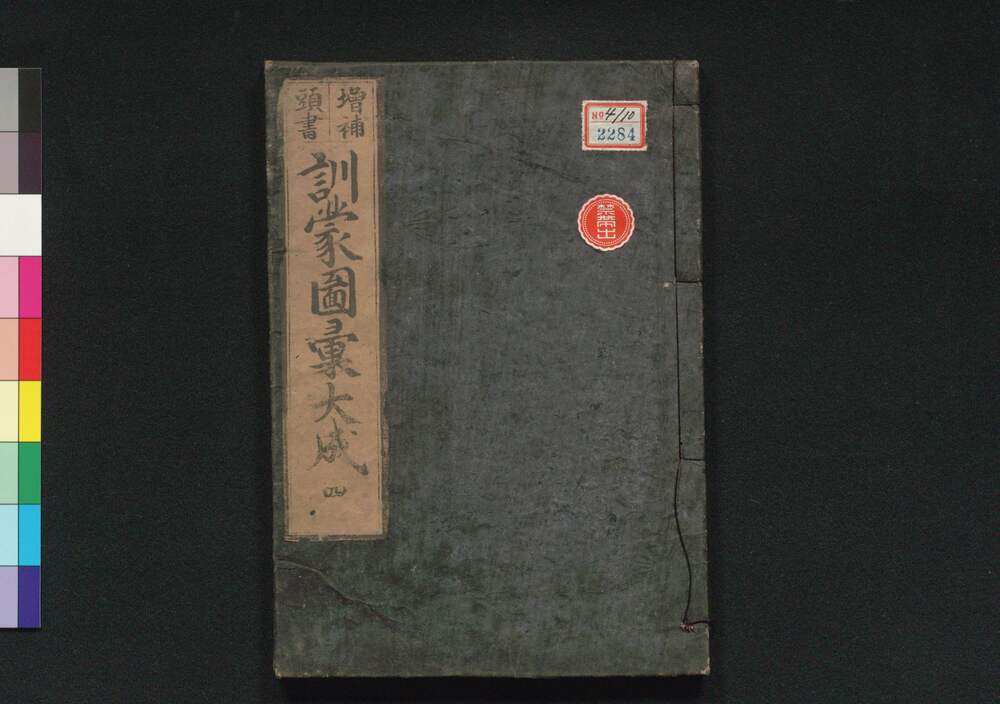 増補
頭書
訓蒙圖彙大成
四
No 4/10
2284
禁帶出